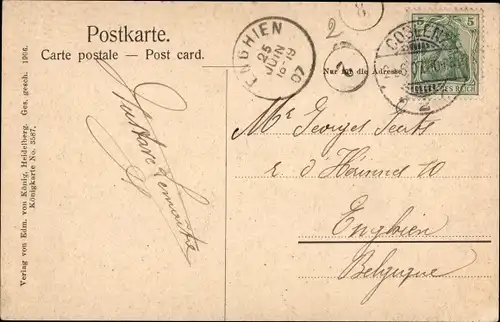 Postkarte.
Carte postale — Post card.
Nur für die Adresse
ENGHIEN
25
JUIN
18-19
07
2
5 5
COBLENZ
2
REICH
Mr Georges
r. d'Hainud 10
Enghien
Belgique
Verlag von Edm. von König, Heidelberg. Ges. gesch. 1906.
Königkarte No. 3587.